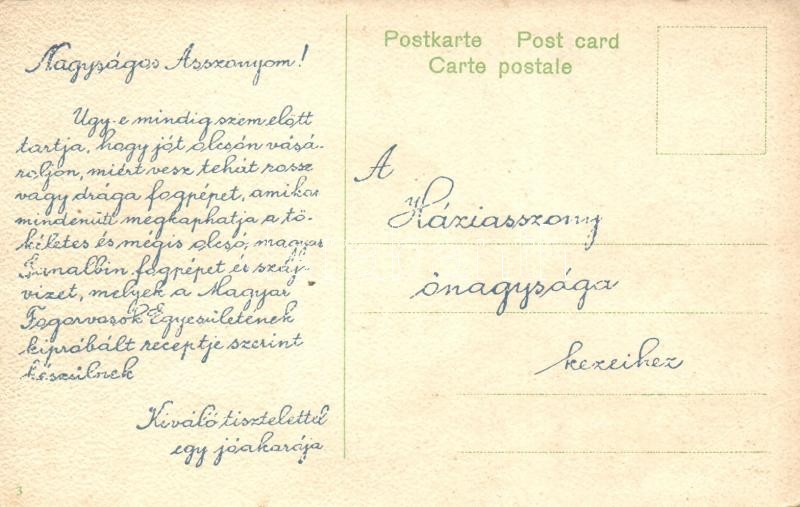 Nagyságos Asszonyom!
Ugy-e mindig szem elött
tartja, hogy jót olcsón vásá-
roljon, miért vesz tehát rossz
vagy drága fogpépet, amikor
mindenütt megkaphatja a tö-
kéletes és mégis olcsó, magyar
fogpépet és száj-
vizet, melyek a Magyar
Fogorvosok Egyesületének
kipróbált receptje szerint
készülnek
Kiváló tisztelettel
egy jóakarója
3
Postkarte Post card
Carte postale
A
Háziasszony
önagysága
kezeihez